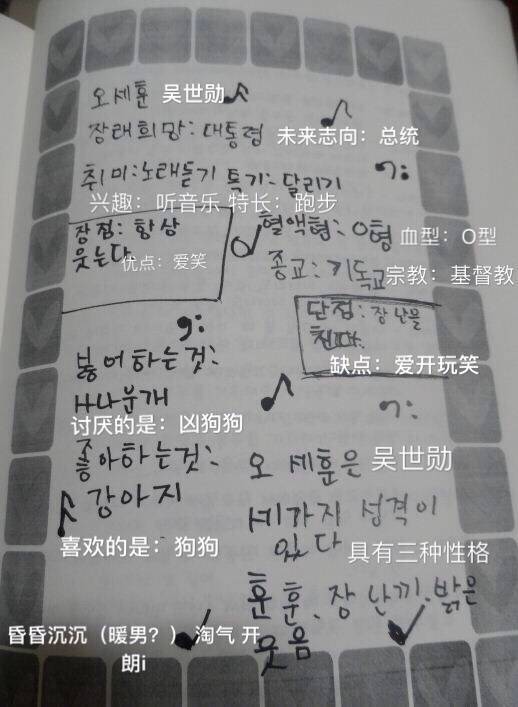 오세훈 吴世勋
장래희망: 대통령 未来志向：总统
취미:노래듣기 특기: 달리기
兴趣：听音乐 特长：跑步
장점: 항상
웃는다
优点：爱笑
혈액형: O형 血型：O型
종교: 기독교 宗教：基督教
단점: 장난을
친다.
缺点：爱开玩笑
싫어하는것:
사나운개
讨厌的是：凶狗狗
좋아하는것:
강아지
喜欢的是：狗狗
오 세훈은 吴世勋
세가지 성격이
있다 具有三种性格
훈훈、장난끼、밝은
웃음
昏昏沉沉（暖男？） 淘气 开
朗i